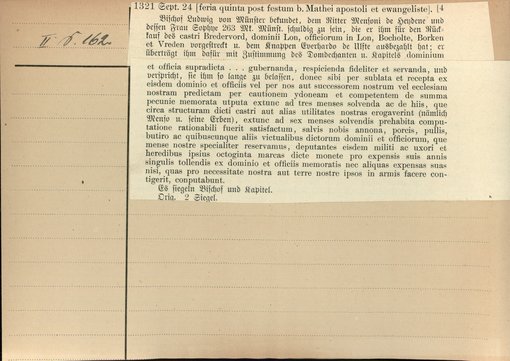 II F. 162.
1321 Sept. 24 [feria quinta post festum b. Mathei apostoli et ewangeliste]. [4
Bischof Ludwig von Münster bekundet, dem Ritter Mensoni de Heydene und
dessen Frau Sophye 263 Mk. Münst. schuldig zu sein, die er ihm für den Rück-
kauf des castri Bredervord, dominii Lon, officiorum in Lon, Bocholte, Borken
et Vreden vorgestreckt u. dem Knappen Everhardo de Ulfte ausbezahlt hat; er
überträgt ihm dafür mit Zustimmung des Domdechanten u. Kapitels dominium
et officia supradicta . . . gubernanda, respicienda fideliter et servanda, und
verspricht, sie ihm so lange zu belassen, donec sibi per sublata et recepta ex
eisdem dominio et officiis vel per nos aut successorem nostrum vel ecclesiam
nostram predictam per cautionem ydoneam et competentem de summa
pecunie memorata utputa extunc ad tres menses solvenda ac de hiis, que
circa structuram dicti castri aut alias utilitates nostras erogaverint (nämlich
Menso u. seine Erben), extunc ad sex menses solvendis prehabita compu-
tatione rationabili fuerit satisfactum, salvis nobis annona, porcis, pullis,
butiro ac quibuscumque aliis victualibus dictorum dominii et officiorum, que
mense nostre specialiter reservamus, deputantes eisdem militi ac uxori et
heredibus ipsius octoginta marcas dicte monete pro expensis suis annis
singulis tollendis ex dominio et officiis memoratis nec aliquas expensas suas
nisi, quas pro necessitate nostra aut terre nostre ipsos in armis facere con-
tigerit, conputabunt.
Es siegeln Bischof und Kapitel.
Orig. 2 Siegel.